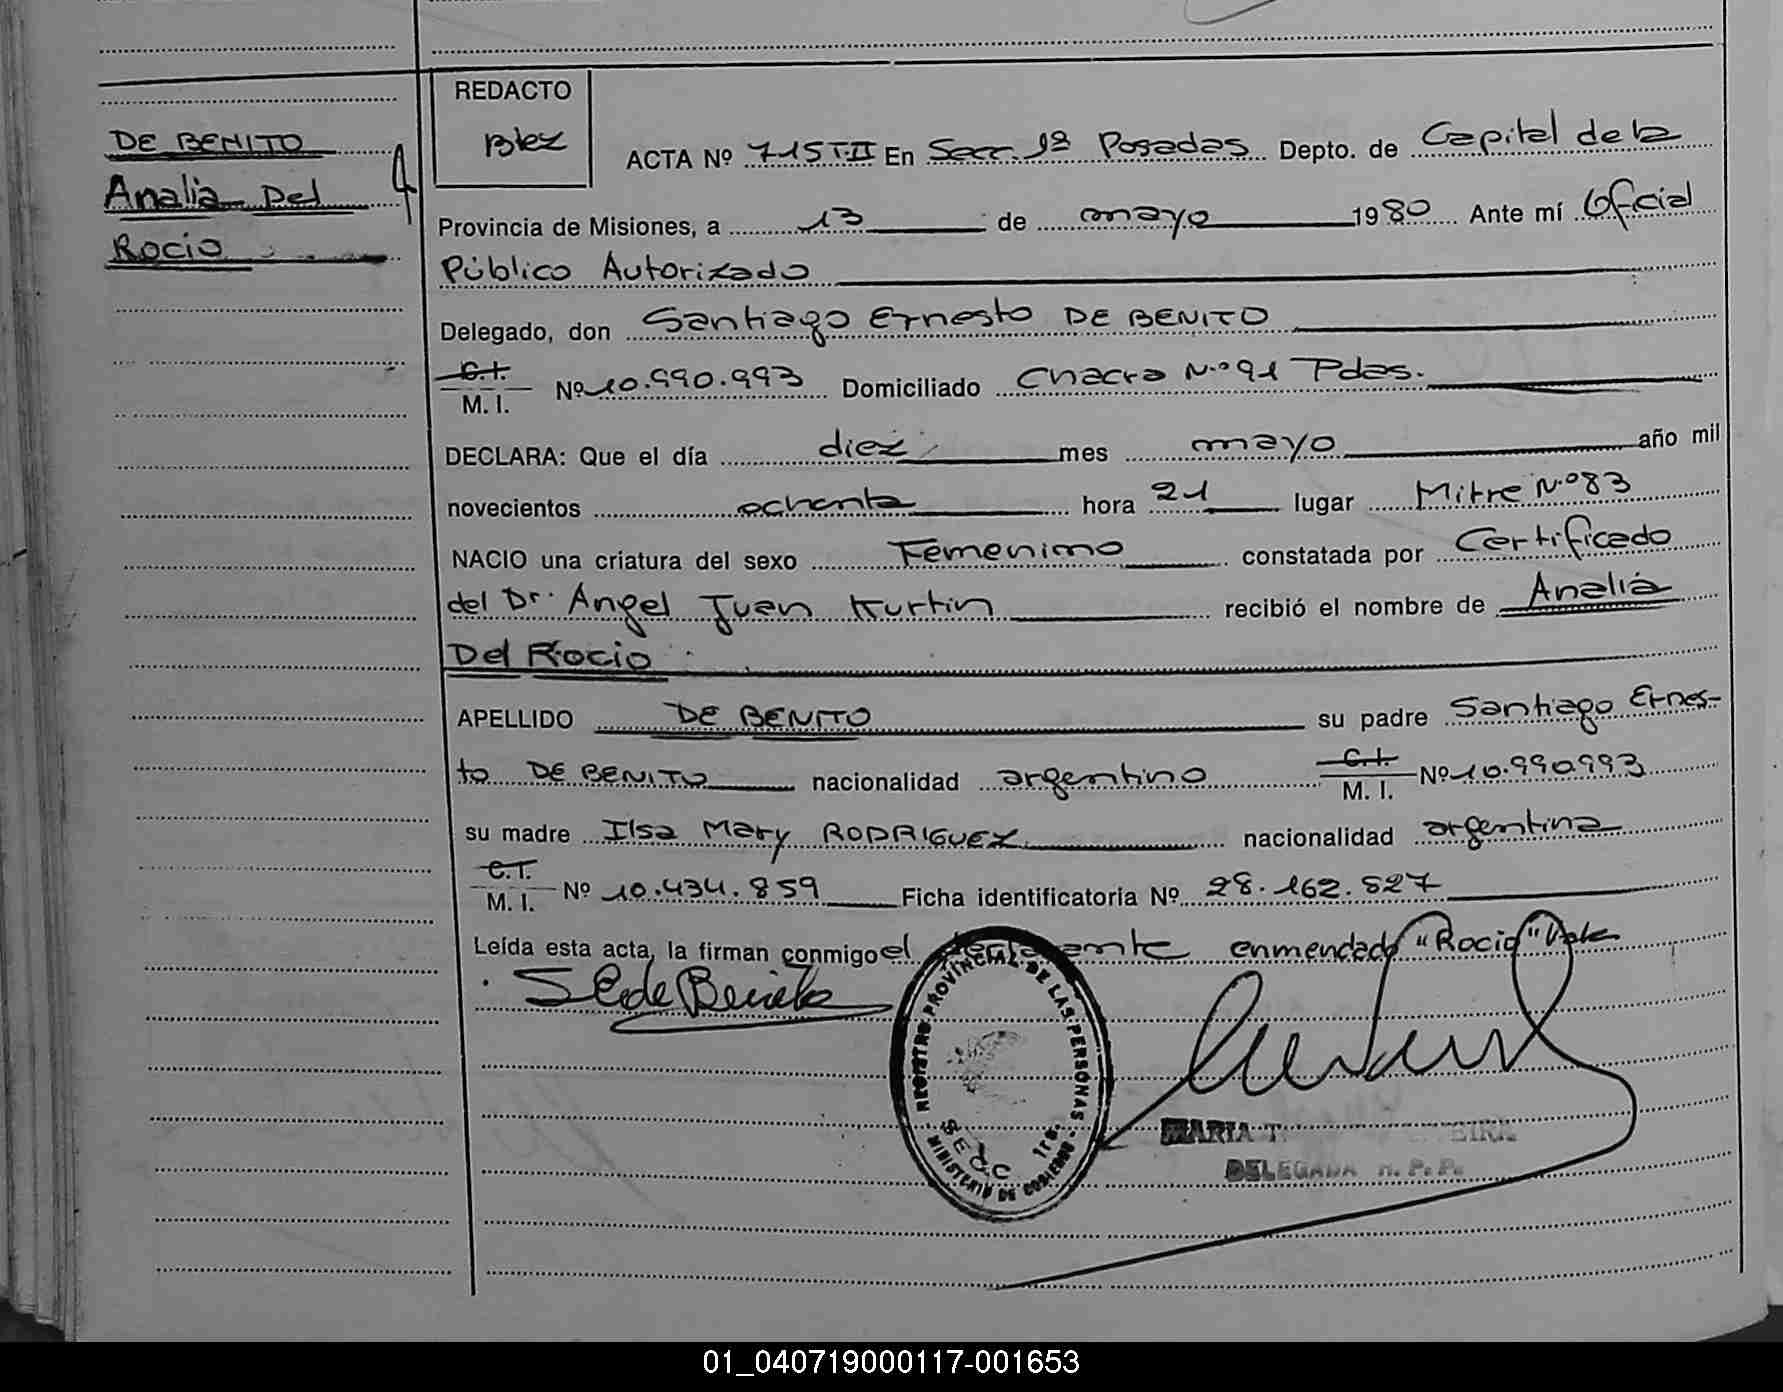 DE BENITO
Analia Del
Rocio
REDACTO
Blez
ACTA Nº 715 T II En Secc. 1ª Posadas Depto. de Capital de la
Provincia de Misiones, a 13 de mayo 1980 Ante mí Oficial
Público Autorizado
Delegado, don Santiago Ernesto DE BENITO
C.I.
M. I. Nº 10.990.993 Domiciliado Chacra N.º 91 Pdas.
DECLARA: Que el día diez mes mayo año mil
novecientos ochenta hora 21 lugar Mitre N.º 83
NACIO una criatura del sexo Femenino constatada por Certificado
del Dr. Angel Juan Kurtin recibió el nombre de Analia
Del Rocio
APELLIDO DE BENITO su padre Santiago Ernes-
to DE BENITO nacionalidad argentino C.I. M. I. Nº 10.990993
su madre Ilsa Mary RODRIGUEZ nacionalidad argentina
C.I.
M. I. Nº 10.434.859 Ficha identificatoria Nº 28.162.527
Leída esta acta, la firman conmigo el declarante enmendado "Rocio" Vale
SEdeBenito
REGISTRO PROVINCIAL DE LAS PERSONAS
SECC 1ra.
MINISTERIO DE GOBIERNO
MARIA T
DELEGADA R. P. P.
01_040719000117-001653